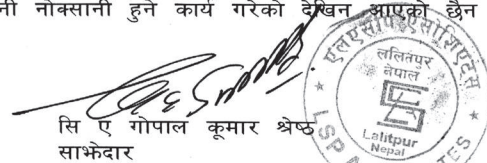 नी नोक्सानी हुने कार्य गरेको देखिन आएको छैन
सि ए गोपाल कुमार श्रेष्ठ
साझेदार
एलएसपि एसोसिएट्स
ललितपुर
नेपाल
Lalitpur
Nepal
LSP